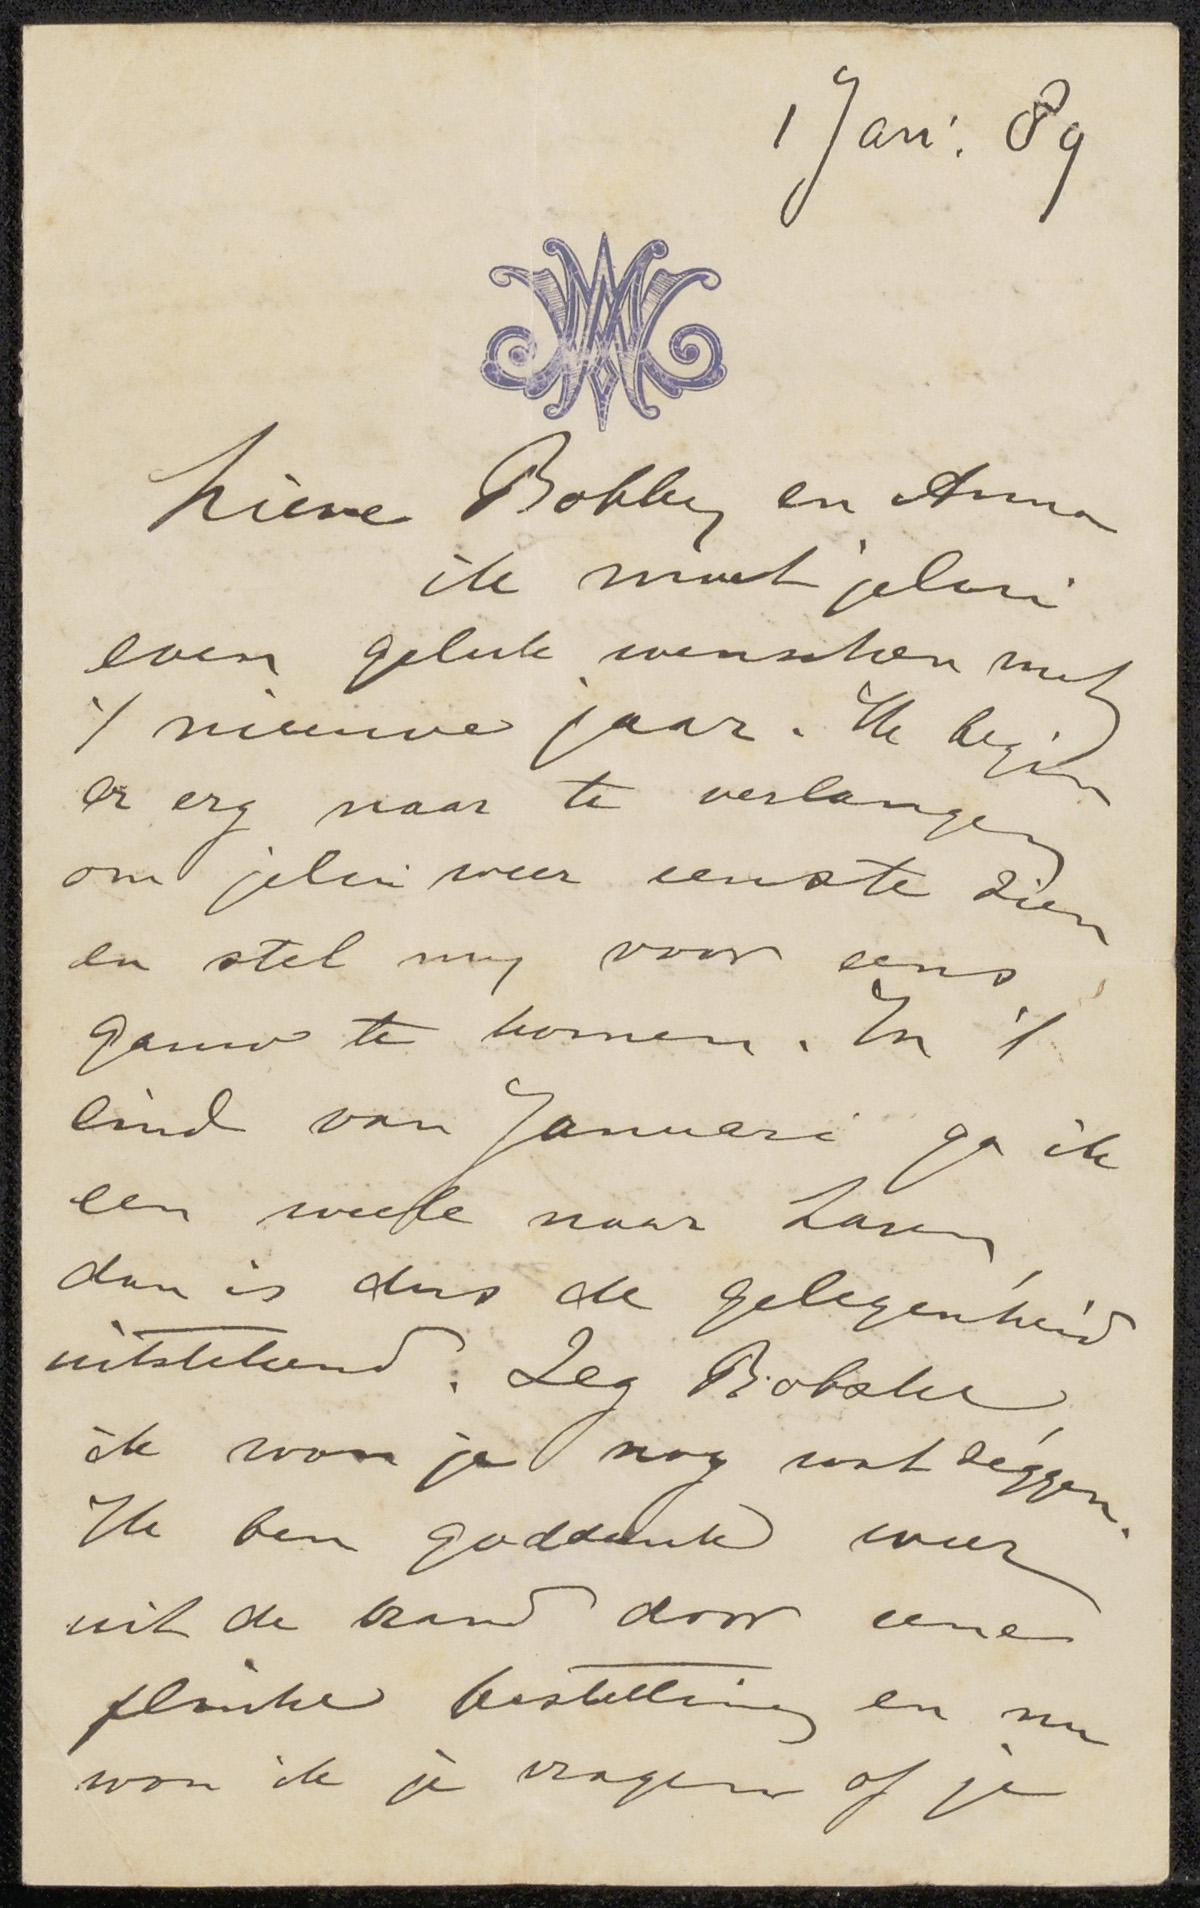 1 Jan: 89
Lieve Bobby en Anna
ik moet jelui
even geluk wenschen met
't nieuwe jaar. Ik begin
er erg naar te verlangen
om jelui weer eens te zien
en stel my voor eens
gauw te komen. In 't
eind van Januari ga ik
een weekje naar Laren,
dan is dus de gelegenheid
uitstekend. Zeg Bobske,
ik wou je nog wat zeggen.
Ik ben goddank weer
uit de brand door eene
flinke bestelling en nu
wou ik je vragen of je